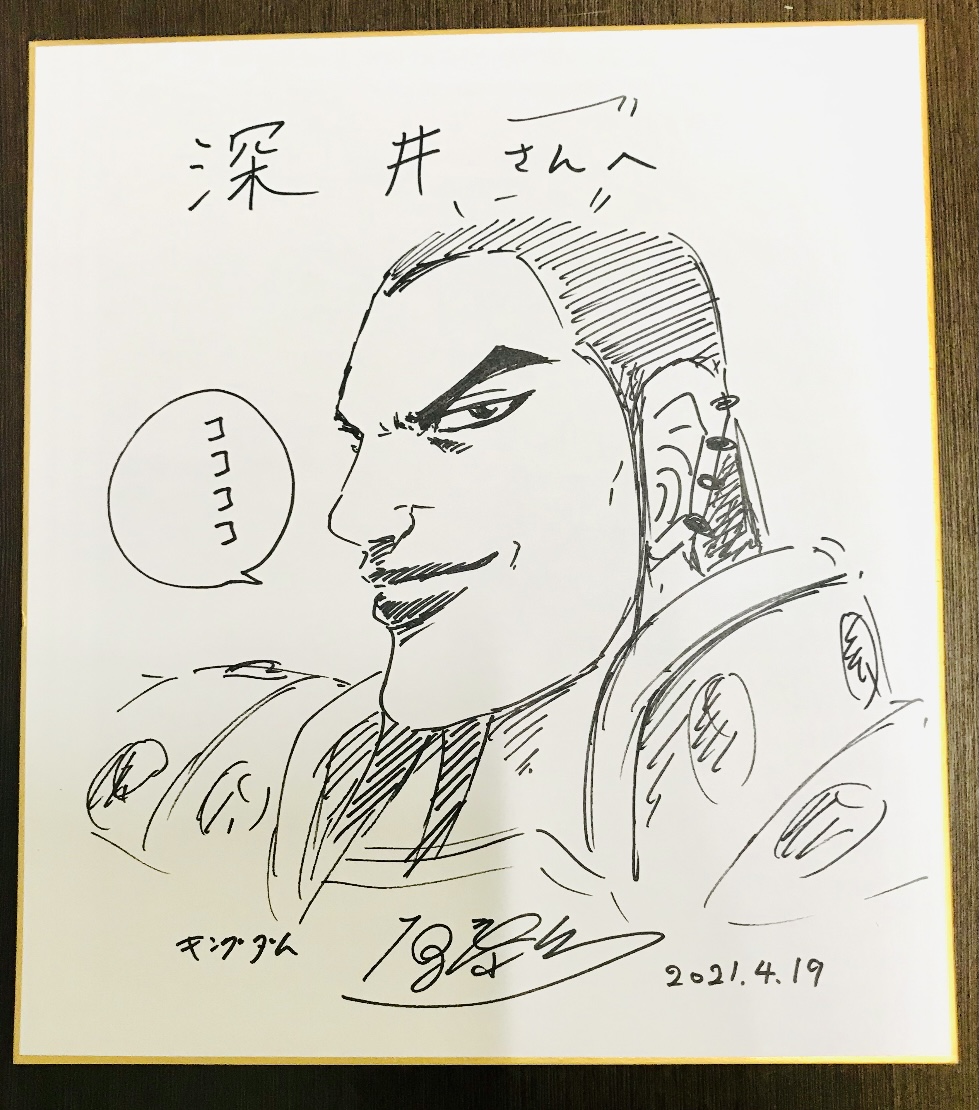 深井さんへ
コココココ
キングダム
2021.4.19